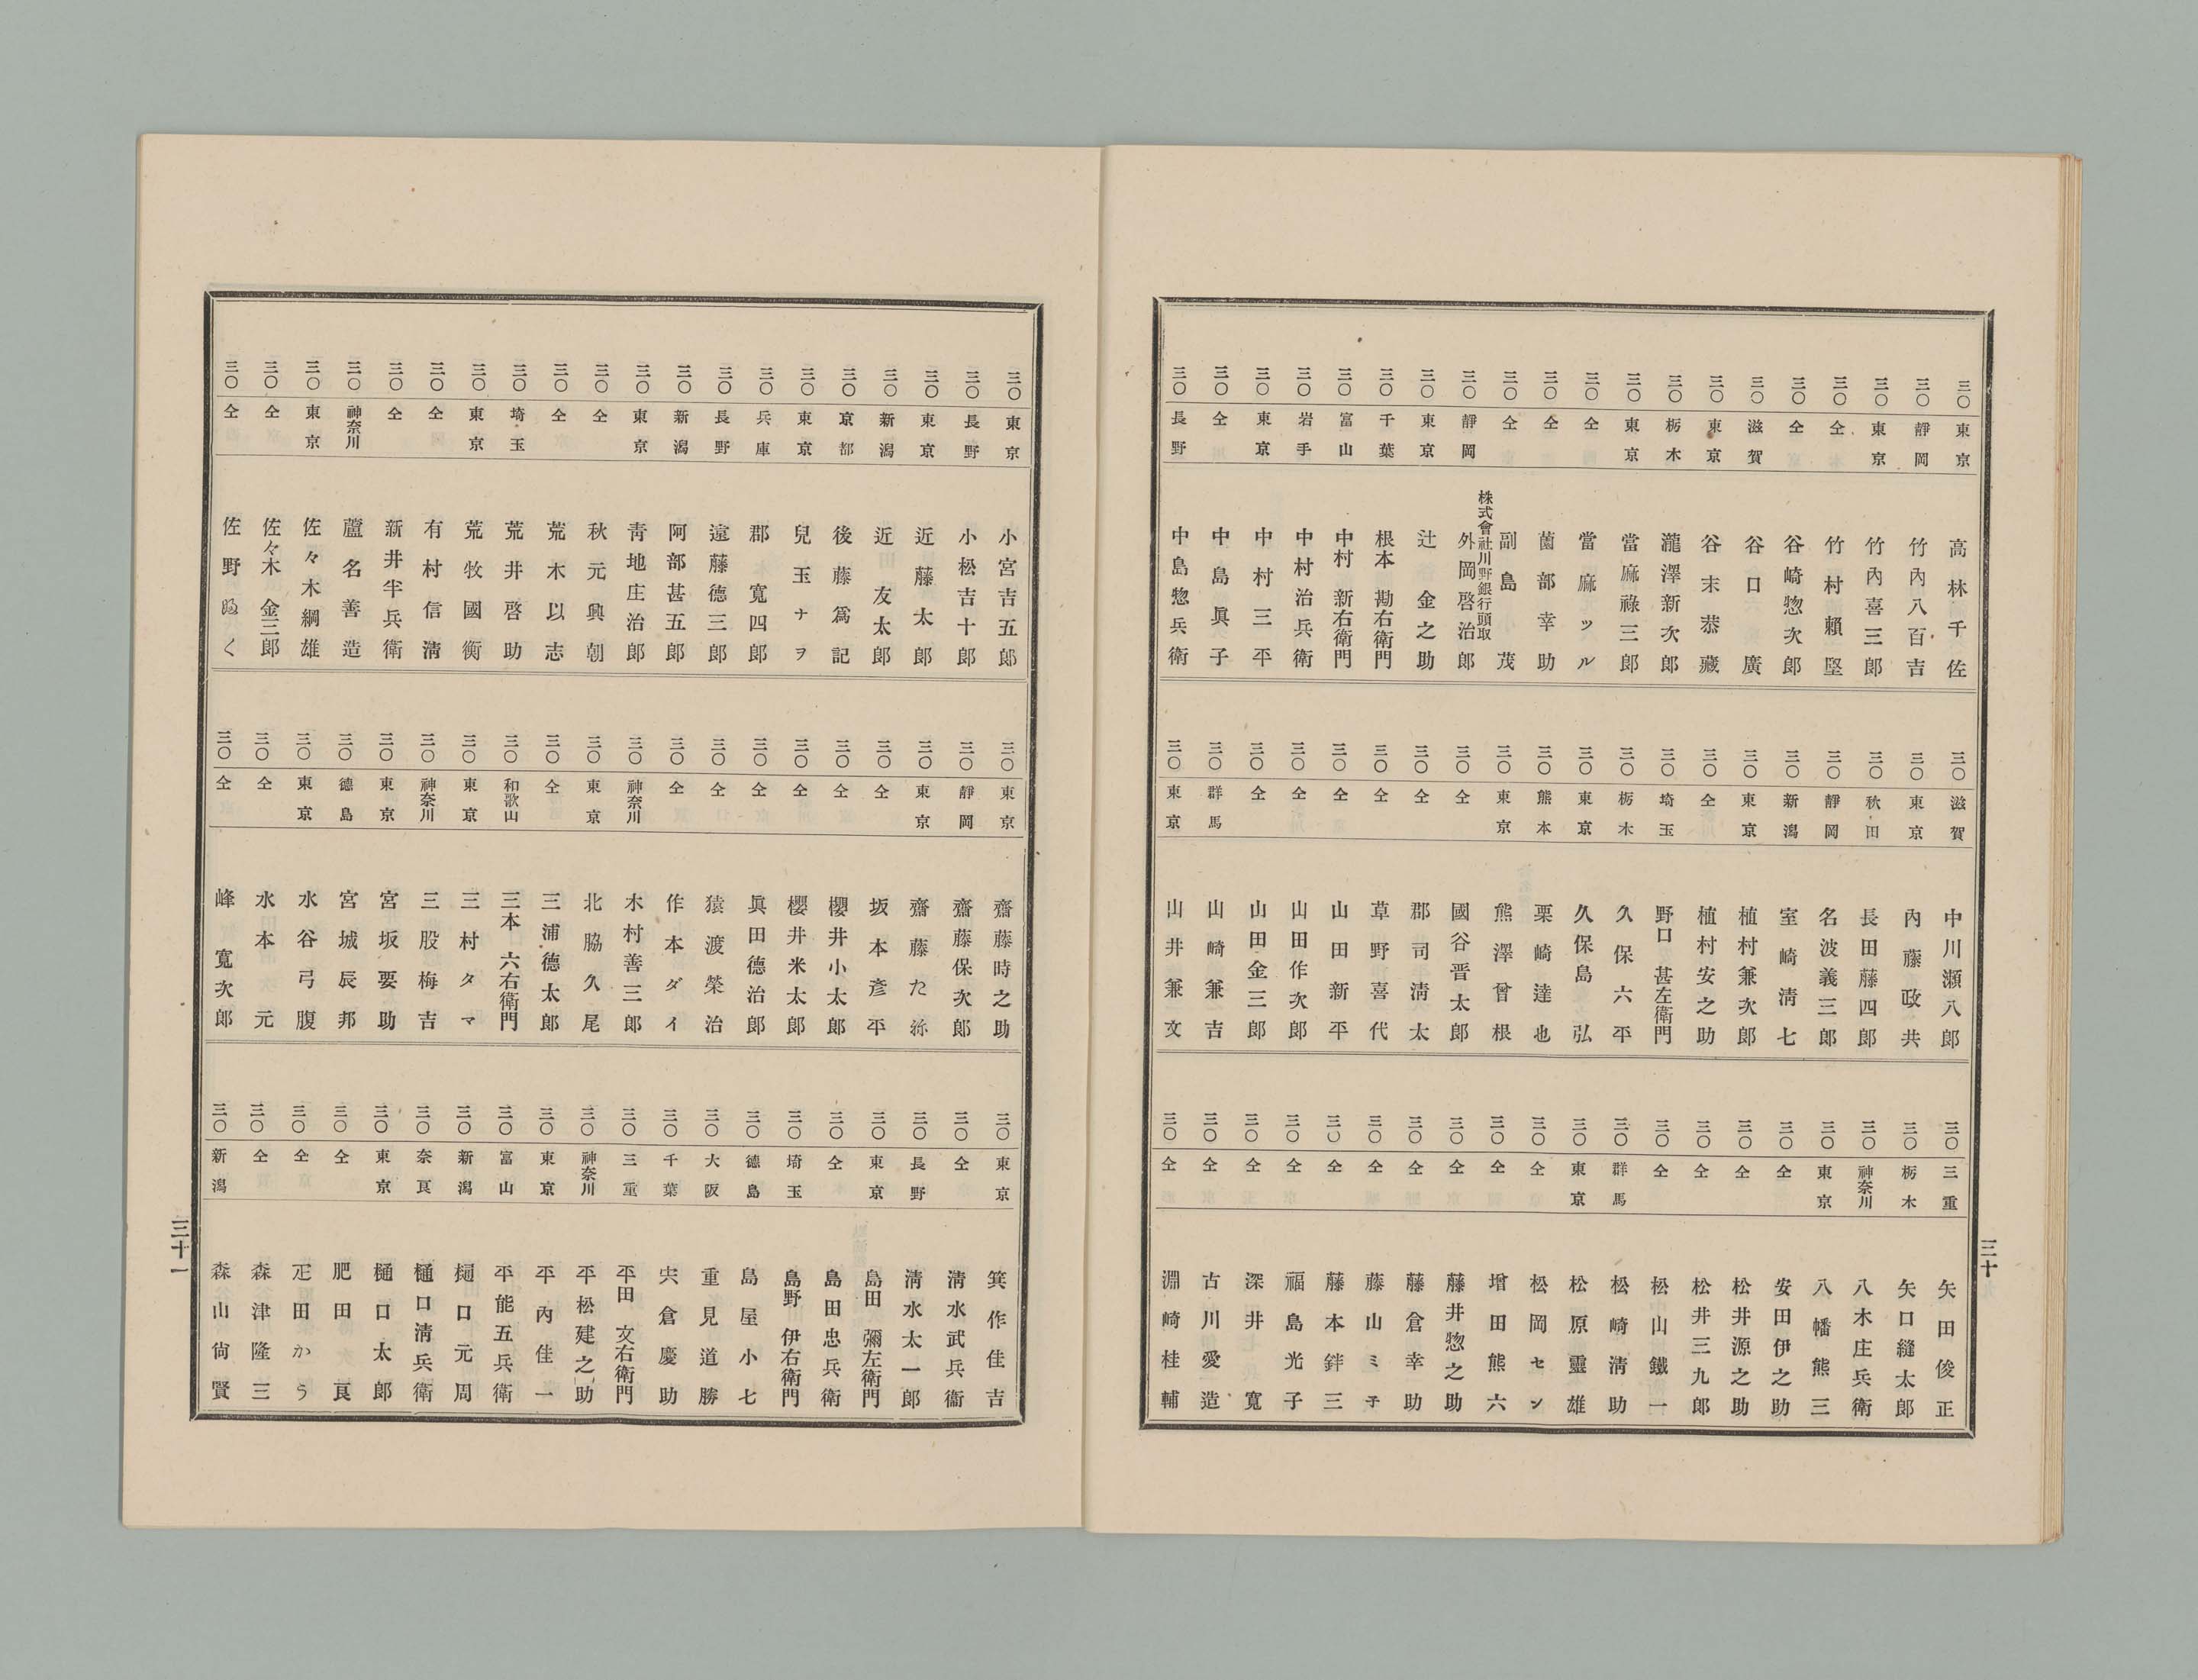 三〇 東京 高林千佐
三〇 靜岡 竹內八百吉
三〇 東京 竹內喜三郎
三〇 仝 竹村賴堅
三〇 仝 谷崎惣次郎
三〇 滋賀 谷口廣
三〇 東京 谷末恭藏
三〇 栃木 瀧澤新次郎
三〇 東京 當麻祿三郎
三〇 仝 當麻ツル
三〇 仝 薗部幸助
三〇 仝 副島茂
三〇 靜岡 株式會社川野銀行頭取 外岡啓治郎
三〇 東京 辻金之助
三〇 千葉 根本勘右衛門
三〇 富山 中村新右衛門
三〇 岩手 中村治兵衛
三〇 東京 中村三平
三〇 仝 中島眞子
三〇 長野 中島惣兵衛
三〇 滋賀 中川瀨八郎
三〇 東京 內藤政共
三〇 秋田 長田藤四郎
三〇 靜岡 名波義三郎
三〇 新潟 室崎淸七
三〇 東京 植村兼次郎
三〇 仝 植村安之助
三〇 埼玉 野口甚左衛門
三〇 栃木 久保六平
三〇 東京 久保島弘
三〇 熊本 栗崎達也
三〇 東京 熊澤曾根
三〇 仝 國谷晋太郎
三〇 仝 郡司淸太
三〇 仝 草野喜代
三〇 仝 山田新平
三〇 仝 山田作次郎
三〇 仝 山田金三郎
三〇 群馬 山崎兼吉
三〇 東京 山井兼文
三〇 三重 矢田俊正
三〇 栃木 矢口縫太郎
三〇 神奈川 八木庄兵衛
三〇 東京 八幡熊三
三〇 仝 安田伊之助
三〇 仝 松井源之助
三〇 仝 松井三九郎
三〇 仝 松山鐵一
三〇 群馬 松崎淸助
三〇 東京 松原靈雄
三〇 仝 松岡セン
三〇 仝 增田熊六
三〇 仝 藤井惣之助
三〇 仝 藤倉幸助
三〇 仝 藤山ミチ
三〇 仝 藤本鉡三
三〇 仝 福島光子
三〇 仝 深井寬
三〇 仝 古川愛造
三〇 仝 淵崎桂輔
三十
三〇 東京 小宮吉五郎
三〇 長野 小松吉十郎
三〇 東京 近藤太郎
三〇 新潟 近友太郎
三〇 京都 後藤爲記
三〇 東京 兒玉ナヲ
三〇 兵庫 郡寬四郎
三〇 長野 遠藤德三郎
三〇 新潟 阿部甚五郎
三〇 東京 靑地庄治郎
三〇 仝 秋元興朝
三〇 仝 荒木以志
三〇 埼玉 荒井啓助
三〇 東京 荒牧國衡
三〇 仝 有村信淸
三〇 仝 新井半兵衛
三〇 神奈川 蘆名善造
三〇 東京 佐々木綱雄
三〇 仝 佐々木金三郎
三〇 仝 佐野ぬく
三〇 東京 齋藤時之助
三〇 靜岡 齋藤保次郎
三〇 東京 齋藤た祢
三〇 仝 坂本彥平
三〇 仝 櫻井小太郎
三〇 仝 櫻井米太郎
三〇 仝 眞田德治郎
三〇 仝 猿渡榮治
三〇 仝 作本ダイ
三〇 神奈川 木村善三郎
三〇 東京 北脇久尾
三〇 仝 三浦德太郎
三〇 和歌山 三本六右衛門
三〇 東京 三村タマ
三〇 神奈川 三股梅吉
三〇 東京 宮坂要助
三〇 德島 宮城辰邦
三〇 東京 水谷弓腹
三〇 仝 水本元
三〇 仝 峰寬次郎
三〇 東京 箕作佳吉
三〇 仝 淸水武兵衞
三〇 長野 淸水太一郎
三〇 東京 島田彌左衛門
三〇 仝 島田忠兵衛
三〇 埼玉 島野伊右衛門
三〇 德島 島屋小七
三〇 大阪 重見道勝
三〇 千葉 宍倉慶助
三〇 三重 平田文右衛門
三〇 神奈川 平松建之助
三〇 東京 平內佳一
三〇 富山 平能五兵衛
三〇 新潟 樋口元周
三〇 奈良 樋口淸兵衛
三〇 東京 樋口太郎
三〇 仝 肥田良
三〇 仝 疋田かう
三〇 仝 森津隆三
三〇 新潟 森山尙賢
三十一